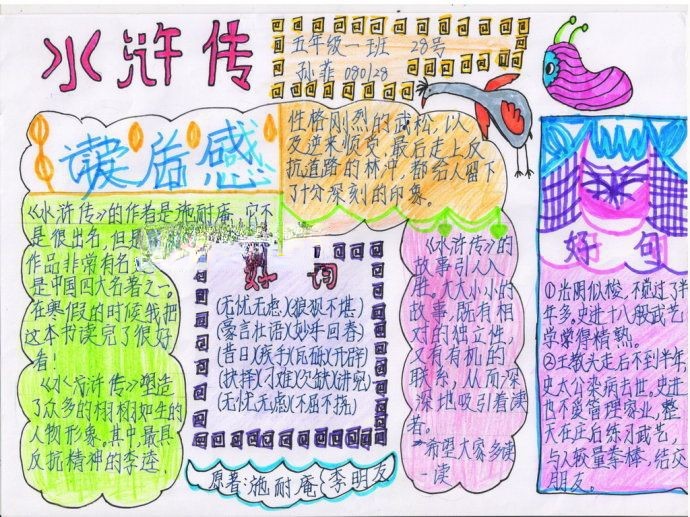 水浒传
五年级一班 28号
孙菲 080128
读后感
《水浒传》的作者是施耐庵,它不
是很出名,但是
作品非常有名
是中国四大名著之一。
在寒假的时候我把
这本书读完了很好
看!
《水浒传》塑造
了众多的栩栩如生的
人物形象。其中,最具
反抗精神的李逵,
性格刚烈的武松,以
及逆来顺受 最后走上反
抗道路的林冲,都给人留下
了十分深刻的印象。
好词
(无忧无虑)(狼狈不堪)
(豪言壮语)(妙手回春)
(昔日)(
(无忧无虑)(不屈不挠)
原著:施耐庵 李明友
《水浒传》的
故事引人入
胜。大大小小的
故事,既有相
对的独立性,
又有有机的
联系,从而深
深地吸引着读
者。
希望大家多读
一读
好句
①光阴似梭,不觉过了半
年多,史进十八般武艺
学学得精熟。
②王教头走后不到半年,
史太公染病去世。史进
也不爱管理家业,整
天在庄后练习武艺,
与人较量拳棒,结交
朋友。